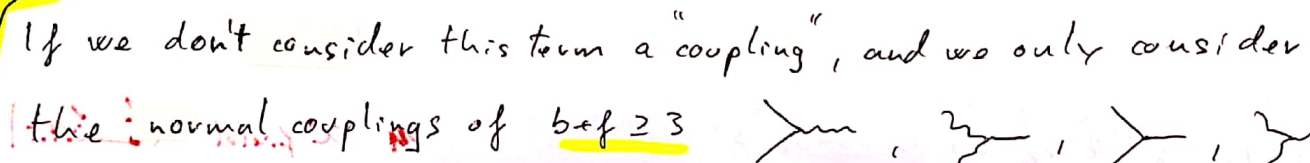 If we don't consider this term a "coupling", and we only consider
the normal couplings of b+f ≥ 3 , , ,